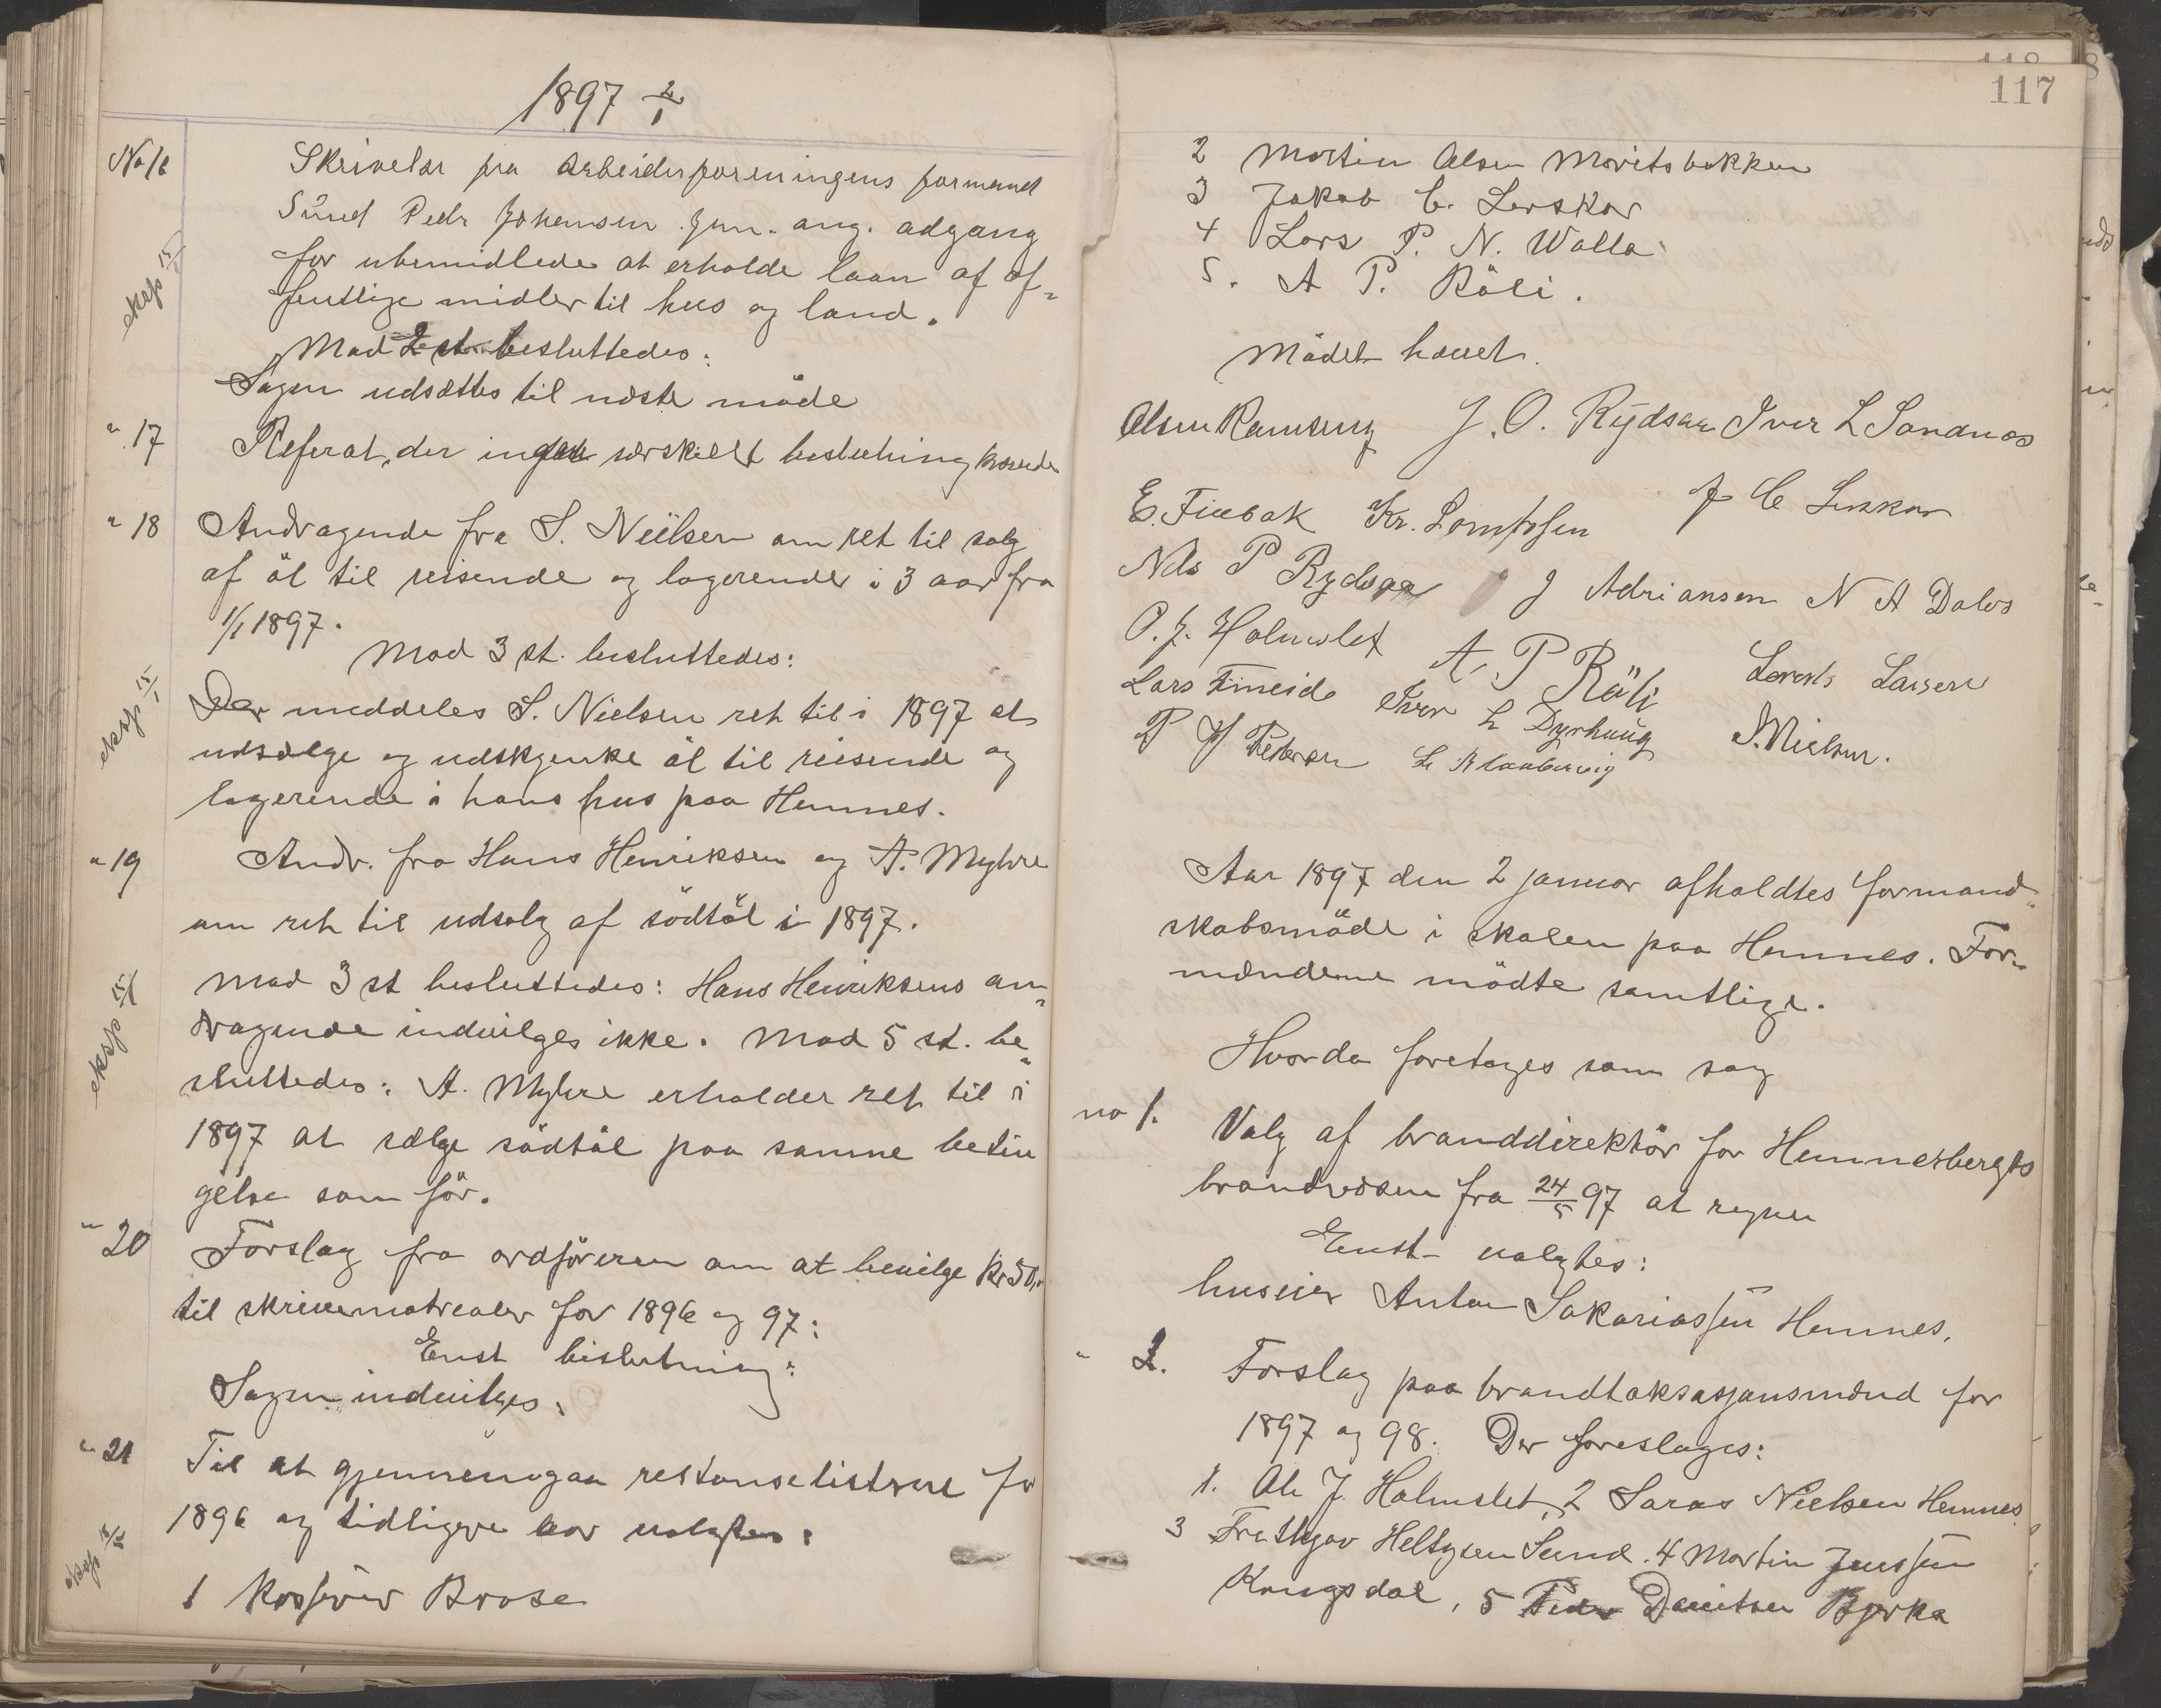 1897 2/1
No 16
Skrivelse fra Arbeiderforeningens formand
Sund Peder Johansen Jun. ang. adgang
for ubemidlede at erholde laan af of-
fentlige midler til hus og land.
eksp 15/1
Mod 2 st. besluttedes:
Sagen udsættes til næste möde
" 17
Referat, der ingen særskilt beslutning krævede
" 18
Andragende fra S. Nielsen om ret til salg
af öl til reisende og logerende i 3 aar fra
1/1 1897.
Mod 3 st. besluttedes:
eksp 15/1
Der meddeles S. Nielsen ret til i 1897 at
udsælge og udskjenke öl til reisende og
logerende i hans hus paa Hemnes.
" 19
Andr. fra Hans Henriksen og A. Myhre
om ret til udsalg af södtöl i 1897.
eksp 15/1
Mod 3 st besluttedes: Hans Henriksens an-
dragende indvilges ikke. Mod 5 st. be-
sluttedes: A. Myhre erholder ret til i
1897 at sælge södtöl paa samme betin
gelse som för.
" 20
Forslag fra ordföreren om at bevilge kr 50,
til skrivematrealer for 1896 og 97:
Enst beslutning:
Sagen indvilges.
" 21
Til at gjennemgaa restanselisterne for
1896 og tidligere aar valgtes:
eksp
1 Kasserer Brose
117
2 Martin Olsen Moritsbakken
3 Jakob C. Lerskar
4 Lars P. N. Walla
5. A P. Röli.
Mödet hævet.
Olsen Ramseng J. O. Rydsaa Iver L Sandnes
E. Finbak Kr. Lorntsen J C Lerskar
Nils P Rydsaa J Adriansen N A Dalos
O. J. Holmslet A. P Röli Lorents Larsen
Lars Fineide Iver L Dyrhaug S. Nielsen.
P H Pedersen
Aar 1897 den 2 januar afholdtes formand-
skabsmöde i skolen paa Hemnes. For-
mændene mödte samtlige.
Hvorda foretoges som sag
no 1.
Valg af branddirektör for Hemnesbergets
brandvæsen fra 24/5 97 at regne
Enst valgtes:
huseier Anton Sakariassen Hemnes.
" 2.
Forslag paa brandtaksasjonsmænd for
1897 og 98. Der foreslages:
1. Ole J. Holmslet, 2 Saras Nielsen Hemnes
3 Frithjov Heltzen Sund. 4 Martin Jenssen
Kongsdal, 5 Peder Danielsen Bjerka